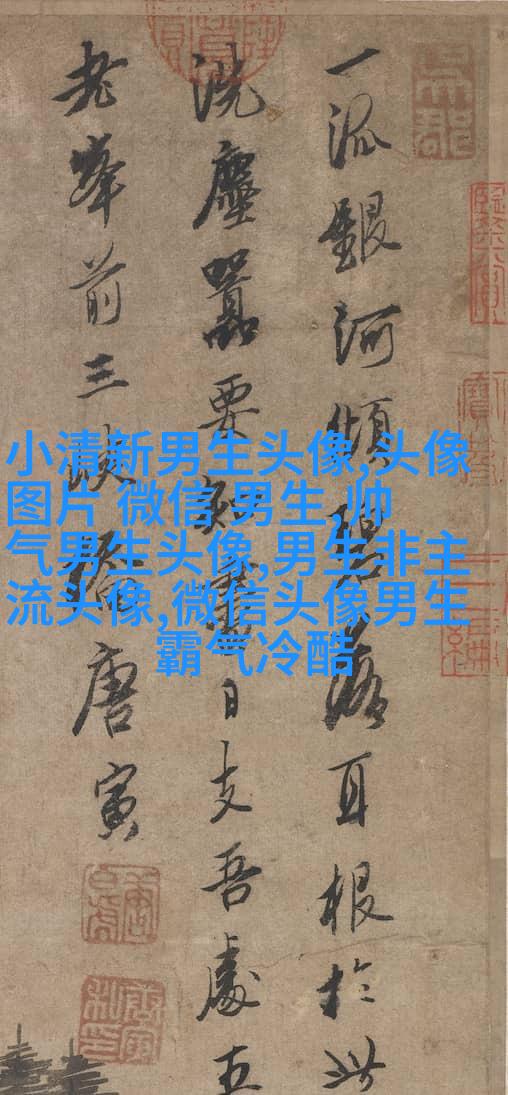 一派銀河傾碧落耳根於此
洗塵囂要知盡日支吾處五
老峯前三峽橋唐寅
小清新男生头像,头像
图片 微信 男生 ,帅
气男生头像,男生非主
流头像,微信头像男生
霸气冷酷